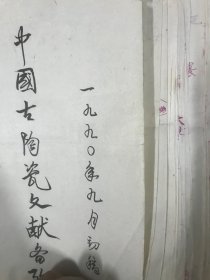 一九九〇年九月初稿
中國古陶瓷文献备